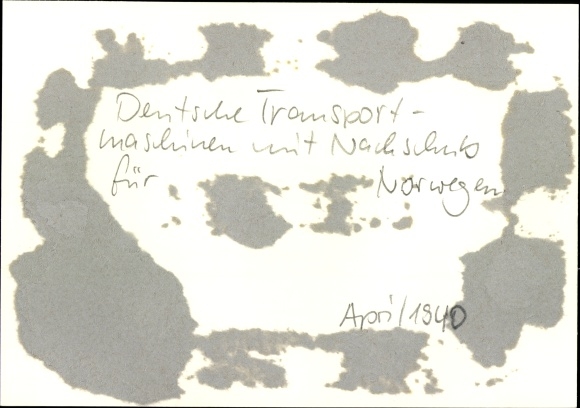 Deutsche Transport-
maschinen mit Nachschub
für Norwegen
April 1940